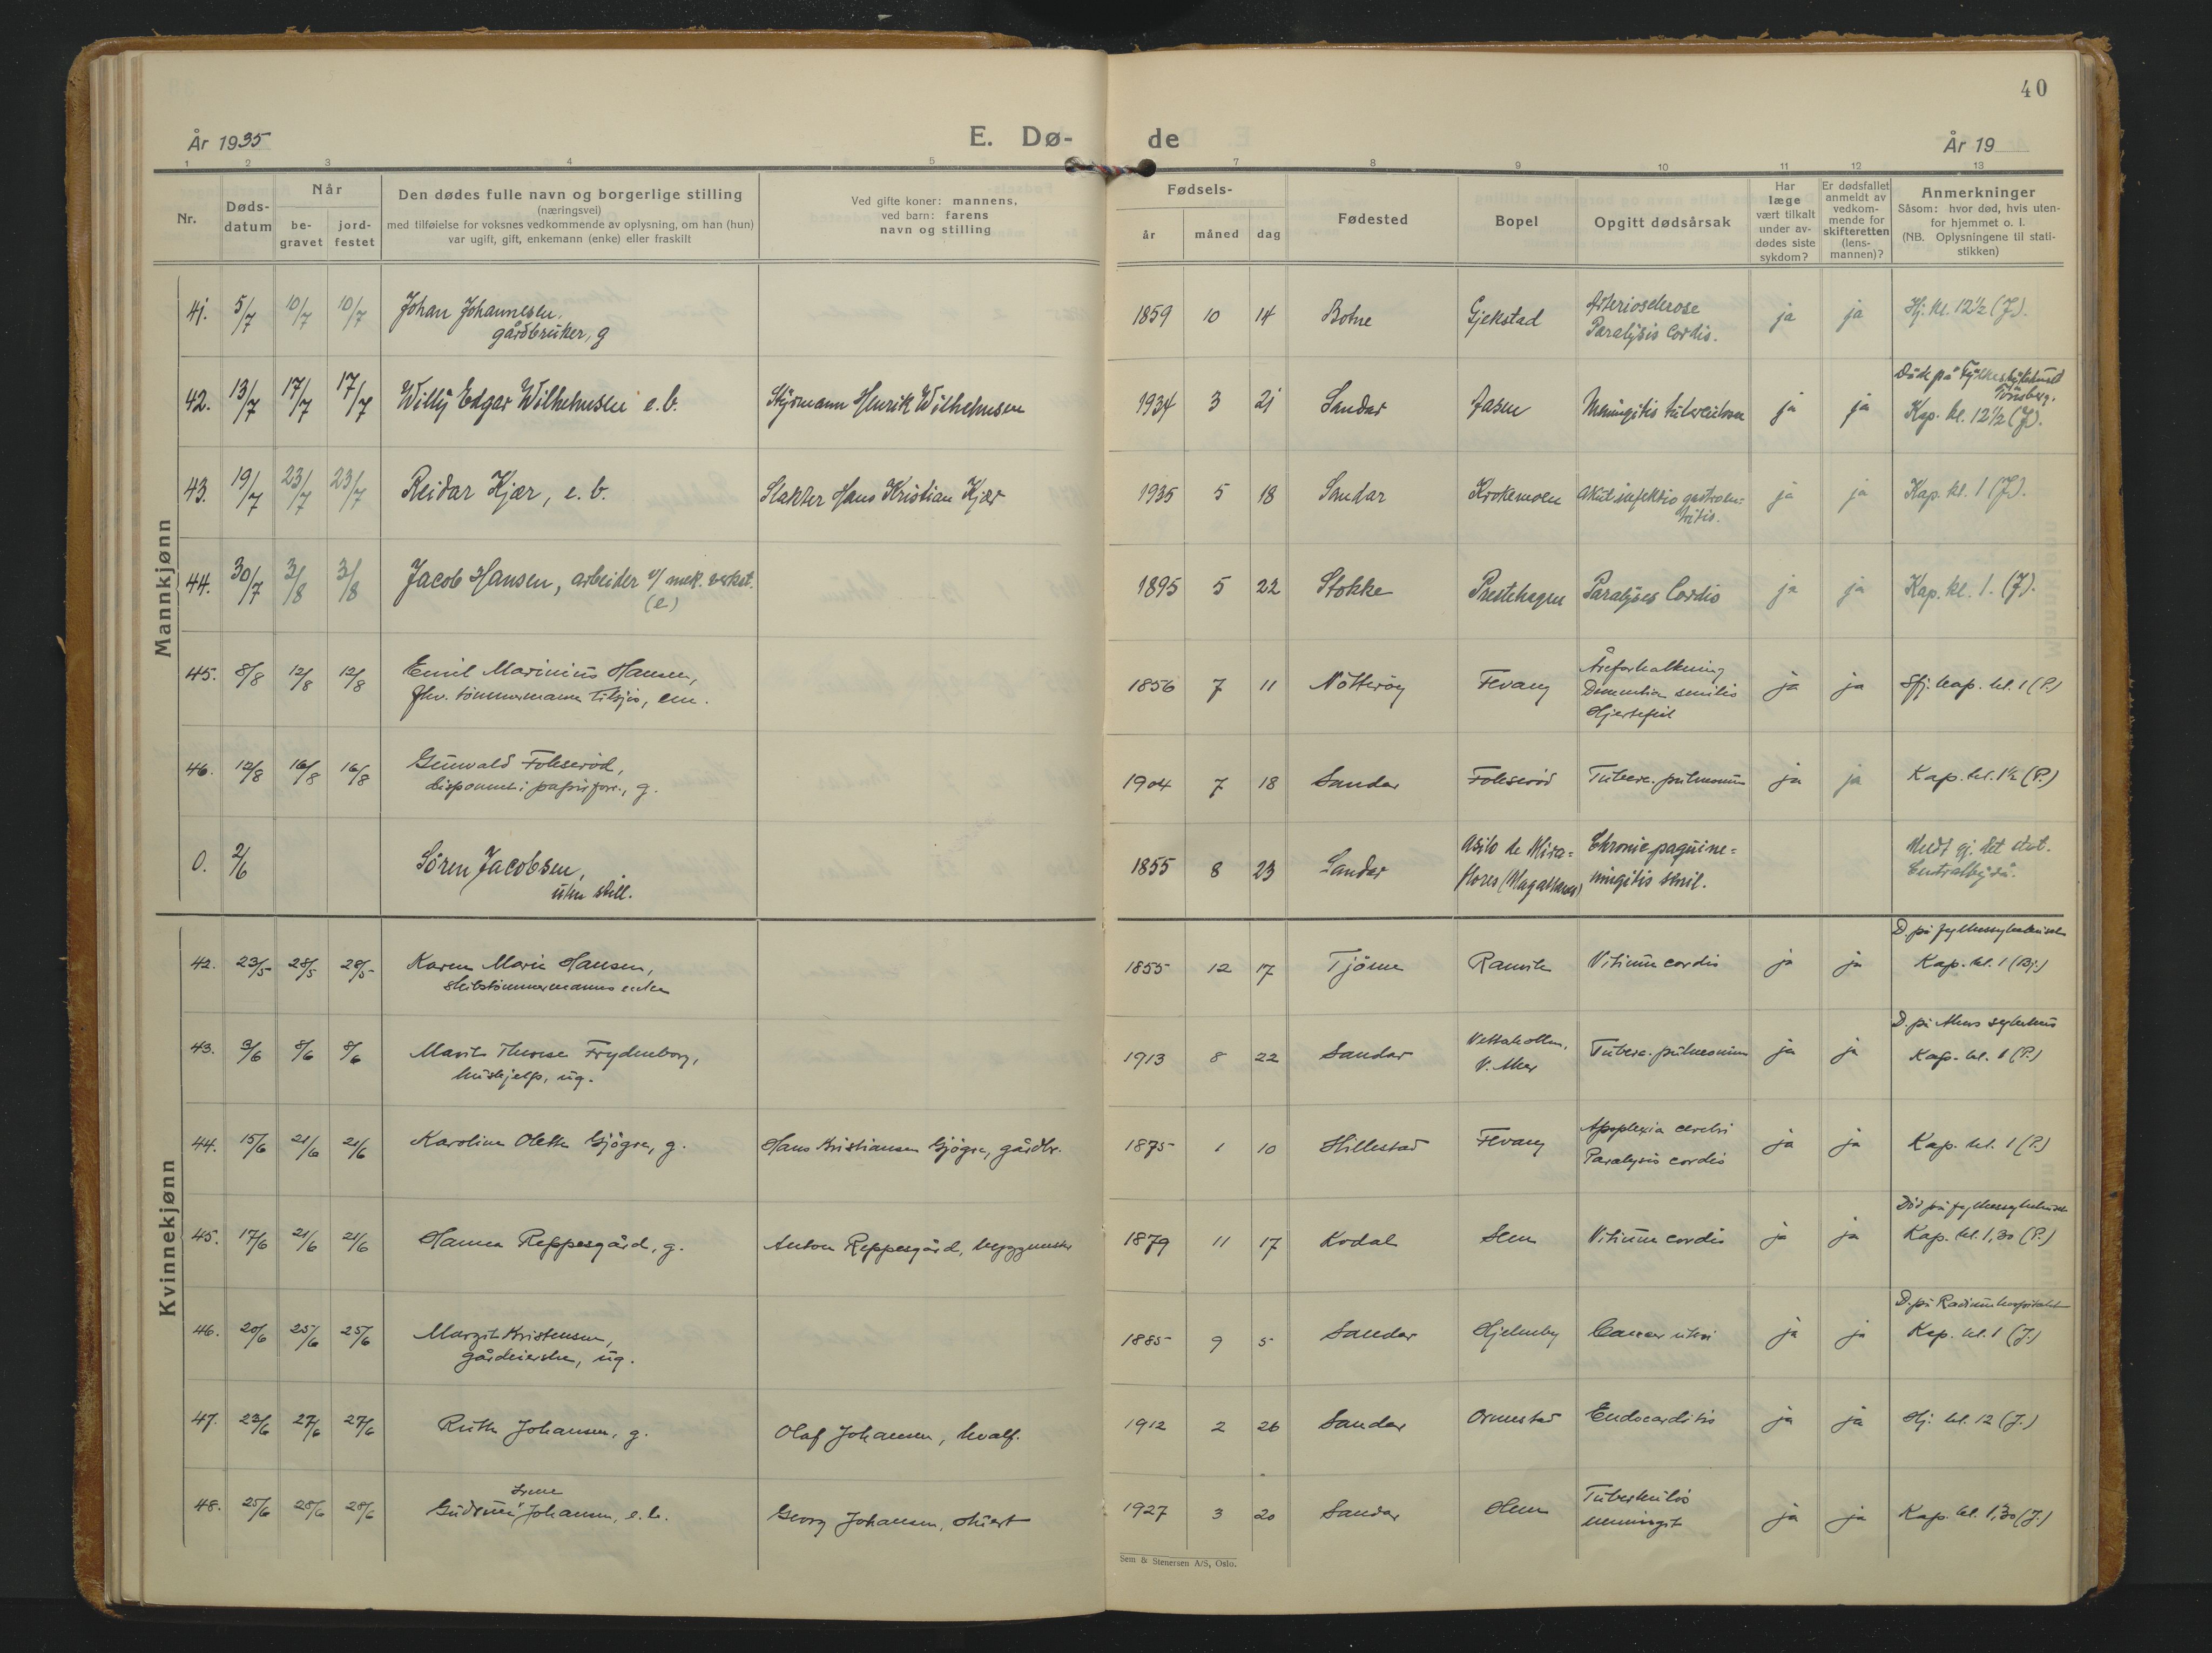 40
År 1935
E. Dø-
de
År 19
1 2 3 4 5 7 8 9 10 11 12 13
Nr.
Døds-
datum
Når
be-
gravet
jord-
festet
Den dødes fulle navn og borgerlige stilling
(næringsvei)
med tilføielse for voksnes vedkommende av oplysning, om han (hun)
var ugift, gift, enkemann (enke) eller fraskilt
Ved gifte koner: mannens,
ved barn: farens
navn og stilling
Fødsels-
år
måned
dag
Fødested
Bopel
Opgitt dødsårsak
Har
læge
vært tilkalt
under av-
dødes siste
sykdom?
Er dødsfallet
anmeldt av
vedkom-
mende for
skifteretten
(lens-
mannen)?
Anmerkninger
Såsom: hvor død, hvis uten-
for hjemmet o. l.
(NB. Oplysningene til stati-
stikken)
Mannkjønn
41. 5/7 10/7 10/7 Johan Johannesen,
gårdbruker, g
1859 10 14 Botne Gjekstad Arteriosclerose
Paralysis Cordis.
ja ja Hj. kl. 12½ (J).
42. 13/7 17/7 17/7 Willy Edgar Wilhelmsen e.b. Styrmann Henrik Wilhelmsen
1934 3 21 Sandar Aasen Meningitis tuberculosa ja ja
Døde på Fylkessykehuset
Tønsberg.
Kap. kl. 12½ (J).
43. 19/7 23/7 23/7 Reidar Kjær, e.b. Slakter Hans Kristian Kjær
1935 5 18 Sandar Krokemoen Akut infektio gastroen-
tritis.
ja ja Kap. kl. 1 (J).
44. 30/7 3/8 3/8 Jacob Hansen, arbeider v/ mek. verkst.
(e)
1895 5 22 Stokke Prestehagen Paralyses Cordis ja ja Kap. kl. 1. (J).
45. 8/8 12/8 12/8 Emil Marinius Hansen,
fhv. tømmermann tilsjøs, em.
1856 7 11 Nøtterøy Fevang Åreforkalkning
Dementia senilis
Hjertefeil
ja ja Sfj. kap. kl. 1 (P.)
46. 12/8 16/8 16/8 Gunvald Fokserød,
disponent i papirforr., g.
1904 7 18 Sandar Fokserød Tuberc. pulmonum ja ja Kap. kl. 1½ (P.)
0. 2/6 Sören Jacobsen,
uten still.
1855 8 23 Sandar Asilo de Mira-
flores (Magallanes)
Chronic paquime-
ningitis senil.
Meldt gj. det stat.
Centralbyrå.
Kvinnekjønn
42. 23/5 28/5 28/5 Karen Marie Hansen,
skibstømmermanns enke
1855 12 17 Tjøme Ranvik Vitium cordis ja ja
D. på fylkessykehuset
Kap. kl. 1 (Bj.)
43. 3/6 8/6 8/6 Marit Therese Frydenborg,
hushjelp, ug.
1913 8 22 Sandar Vettakollen,
V. Aker
Tuberc. pulmonum ja ja
D. på Akers sykehus
Kap. kl. 1 (P.)
44. 15/6 21/6 21/6 Karoline Olette Gjøgre, g. Hans Kristiansen Gjøgre, gårdbr.
1875 1 10 Hillestad Fevang Apoplexia cerebri
Paralysis cordis
ja ja Kap. kl. 1 (P.)
45. 17/6 21/6 21/6 Hanna Reppesgård, g. Anton Reppesgård, byggmester
1879 11 17 Kodal Hem Vitium cordis ja ja
Død på fylkessykehuset
Kap. kl. 1,30 (P.)
46. 20/6 25/6 25/6 Margit Kristensen,
gårdeierske, ug.
1885 9 5 Sandar Hjelmby Cancer uteri ja ja
D. på Radiumhospitalet
Kap. kl. 1 (J.)
47. 23/6 27/6 27/6 Ruth Johansen, g. Olaf Johansen, hvalf.
1912 2 26 Sandar Ormestad Endocarditis ja ja Hj. kl. 12 (J.)
48. 25/6 28/6 28/6 Irene
Gudrun Johansen, e.b. Georg Johansen,
1927 3 20 Sandar Hem Tuberkuløs
meningit
ja ja Kap. kl. 1,30 (J.)
Sem & Stenersen A/S, Oslo.